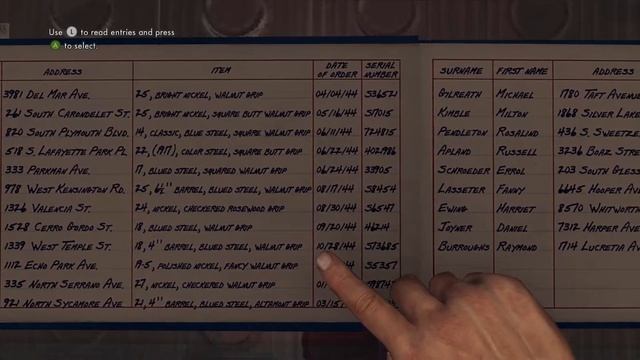 Use L to read entries and press
A to select.
ADDRESS ITEM DATE OF ORDER SERIAL NUMBER
3981 DEL MAR AVE. 25, BRIGHT NICKEL, WALNUT GRIP 04/04/44 S36521
261 SOUTH CARONDELET ST. 25, BRIGHT NICKEL, SQUARE BUTT WALNUT GRIP 05/16/44 S17015
820 SOUTH PLYMOUTH BLVD. 14, CLASSIC, BLUE STEEL, SQUARE WALNUT GRIP 06/11/44 724815
518 S. LAFAYETTE PARK PL 22, COLOR STEEL, SQUARE BUTT GRIP 06/22/44 402986
333 PARKMAN AVE. 17, BLUED STEEL, SQUARED WALNUT GRIP 06/24/44 33905
978 WEST KENSINGTON RD. 25, 6½" BARREL, BLUED STEEL, WALNUT GRIP 08/17/44 S8454
1326 VALENCIA ST. 24, NICKEL, CHECKERED ROSEWOOD GRIP 08/30/44 S6547
1528 CERRO GORDO ST. 18, BLUED STEEL, WALNUT GRIP 09/20/44 46214
1339 WEST TEMPLE ST. 18, 4" BARREL, BLUED STEEL, WALNUT GRIP 10/28/44 S73685
1112 ECHO PARK AVE. POLISHED NICKEL, FANCY WALNUT GRIP /44 S5357
335 NORTH SERRANO AVE. 27, NICKEL, CHECKERED WALNUT GRIP
921 NORTH SYCAMORE AVE. 27, 4" BARREL, BLUED STEEL, ALTAMONT GRIP
SURNAME FIRST NAME ADDRESS
GILREATH MICHAEL 1780 TAFT AVENU
KIMBLE MILTON 1868 SILVER LAKE
PENDLETON ROSALIND 436 S. SWEETZ
APLAND RUSSELL 3236 BOAZ STRE
SCHROEDER ERROL 203 SOUTH GLESS
LASSETER FANNY 6645 HOOPER AV
EWING HARRIET 8570 WHITWORTH
JOYNER DANIEL 7312 HARPER AV
BURROUGHS RAYMOND 1714 LUCRETIA AV